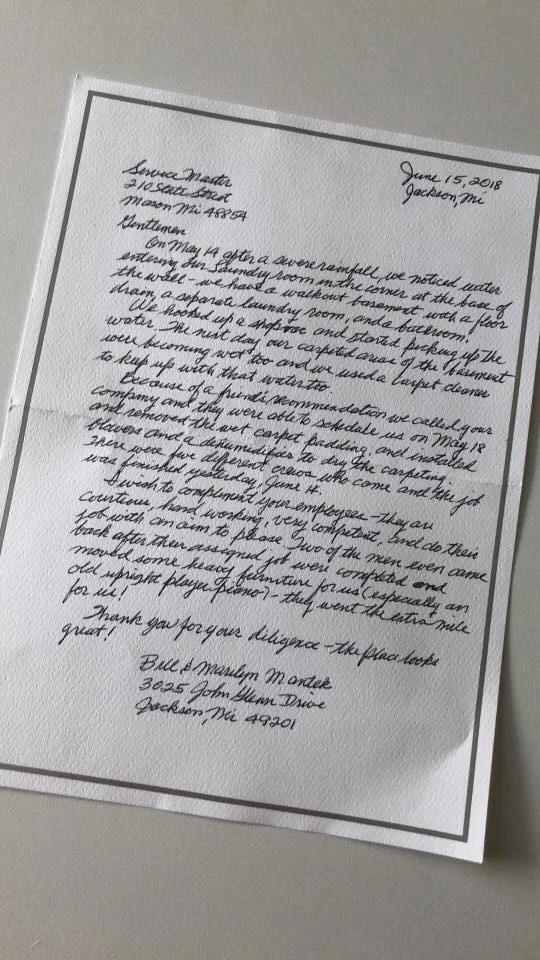 June 15, 2018
Jackson, Mi
Service Master
210 State Street
Mason Mi 48854
Gentlemen
On May 14 after a severe rainfall, we noticed water
entering our laundry room in the corner at the base of
the wall - we have a walkout basement with a floor
drain, a separate laundry room, and a bathroom.
We hooked up a shopvac and started picking up the
water. The next day our carpeted areas of the basement
were becoming wet too and we used a carpet cleaner
to keep up with that water too.
Because of a friend's recommendation we called your
company and they were able to schedule us on May 18
and removed the wet carpet padding, and installed
blowers and a dehumidifier to dry the carpeting.
There were five different crews who came and the job
was finished yesterday, June 14.
I wish to compliment your employees - they are
courteous, hard working, very competent, and do their
job with an aim to please. Two of the men even came
back after their assigned job were completed and
moved some heavy furniture for us (especially an
old upright player piano) - they went the extra mile
for us!
Thank you for your diligence - the place looks
great!
Bill & Marilyn Mantek
3025 John Glenn Drive
Jackson, Mi 49201